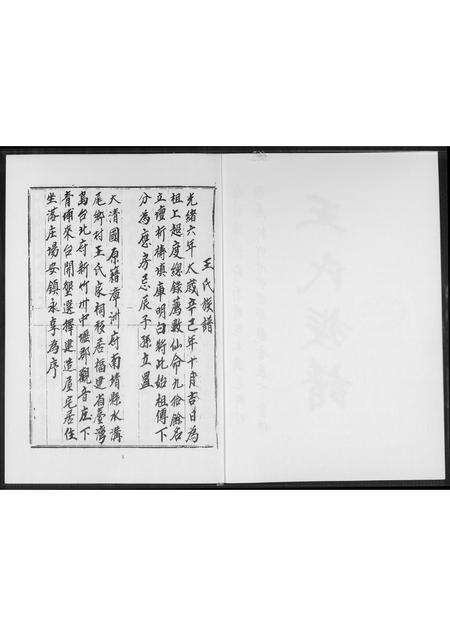 王氏族譜
光緒六年太歲辛巳年十月吉日為
祖上超度總錄萬數仙命九伯餘名
立壇祈禱填庫明白新此始祖傳下
分為應房忌辰子孫立置
大清國原籍漳州府南靖縣水溝
尾鄉村王氏家祠移居福建省臺灣
島台北府新竹州中壢郡觀音庄下
青埔來台開墾選擇建造屋宅居住
坐落庄場安鎮永享為序
1